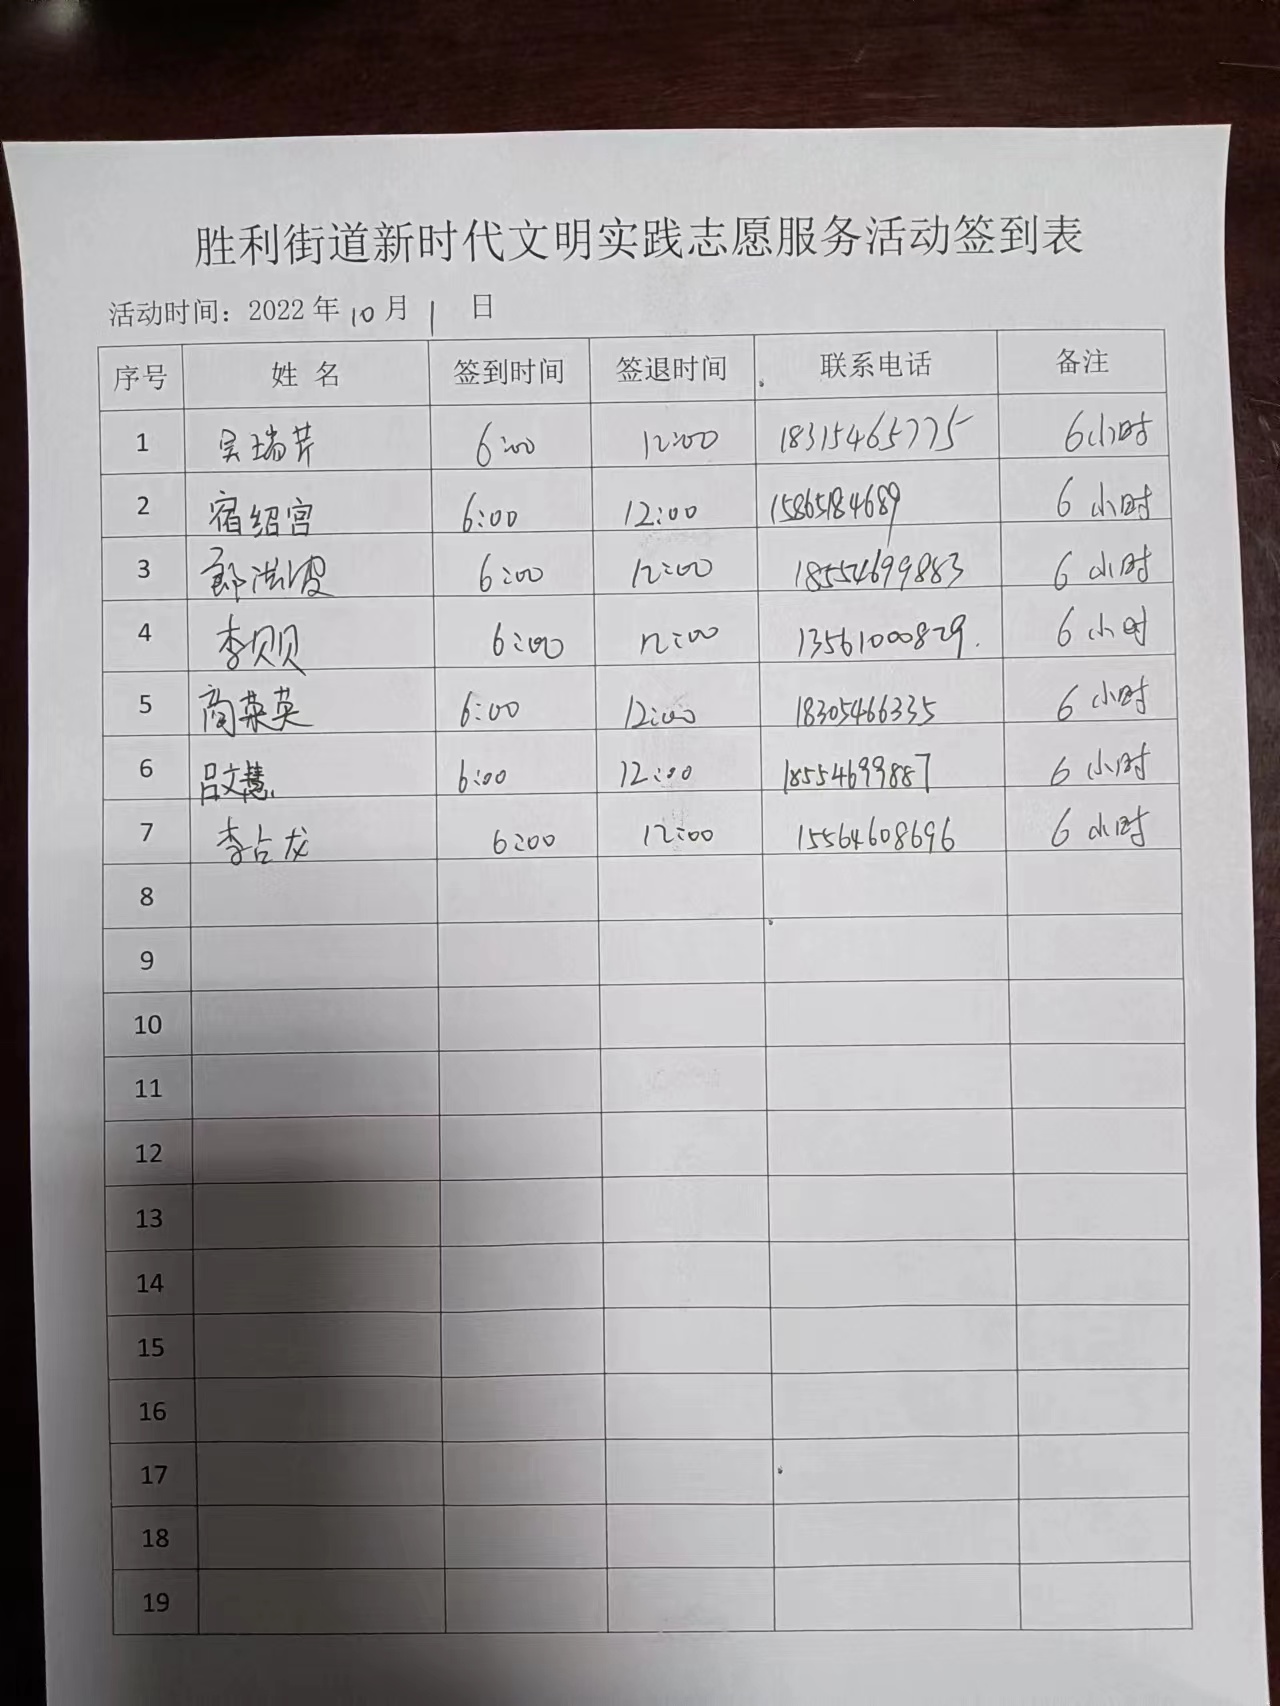 胜利街道新时代文明实践志愿服务活动签到表
活动时间：2022 年 10 月 1 日
序号 姓 名 签到时间 签退时间 联系电话 备注
1 吴瑞芹 6:00 12:00 18315465775 6小时
2 宿绍宫 6:00 12:00 15865184689 6 小时
3 郭洪波 6:00 12:00 18554699883 6 小时
4 李贝贝 6:00 12:00 13561000829. 6 小时
5 商荣英 6:00 12:00 18305466335 6 小时
6 吕文慧 6:00 12:00 18554699887 6 小时
7 李占龙 6:00 12:00 15564608696 6 小时
8
9
10
11
12
13
14
15
16
17
18
19